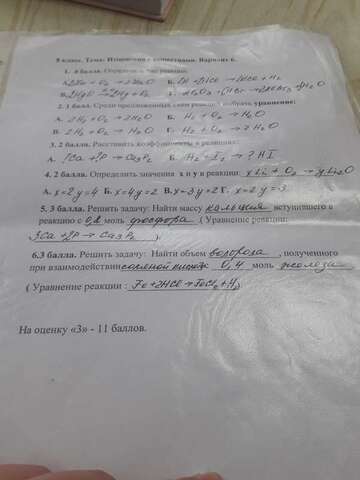 8 класс. Тема: Изменения с веществами. Вариант 6.
1. 4 балла. Определить тип реакции:
2. 1 балл. Среди предложенных схем реакций выбрать уравнение:
А. 2H₂ + O₂ → 2H₂O Б. H₂ + O₂ → H₂O
В. 2H₂ + O₂ → H₂O Г. H₂ + O₂ → 2H₂O
3. 2 балла. Расставить коэффициенты в реакциях:
А. ?Ca + ?P → Ca₃P₂ Б. H₂ + I₂ → ? HI
4. 2 балла. Определить значения x и y в реакции: xLi + O₂ → yLi₂O
А. x=2 y=4 Б. x=4 y=2 В. x=3 y=2 Г. x=2 y=3
5. 3 балла. Решить задачу: Найти массу кальция вступившего в
реакцию с 0,2 моль фосфора ( Уравнение реакции:
3Ca + 2P → Ca₃P₂ ).
6.3 балла. Решить задачу: Найти объем водорода , полученного
при взаимодействии соляной кислоты 0,4 моль железа
( Уравнение реакции : Fe + 2HCl → FeCl₂ + H₂)
На оценку «3» - 11 баллов.